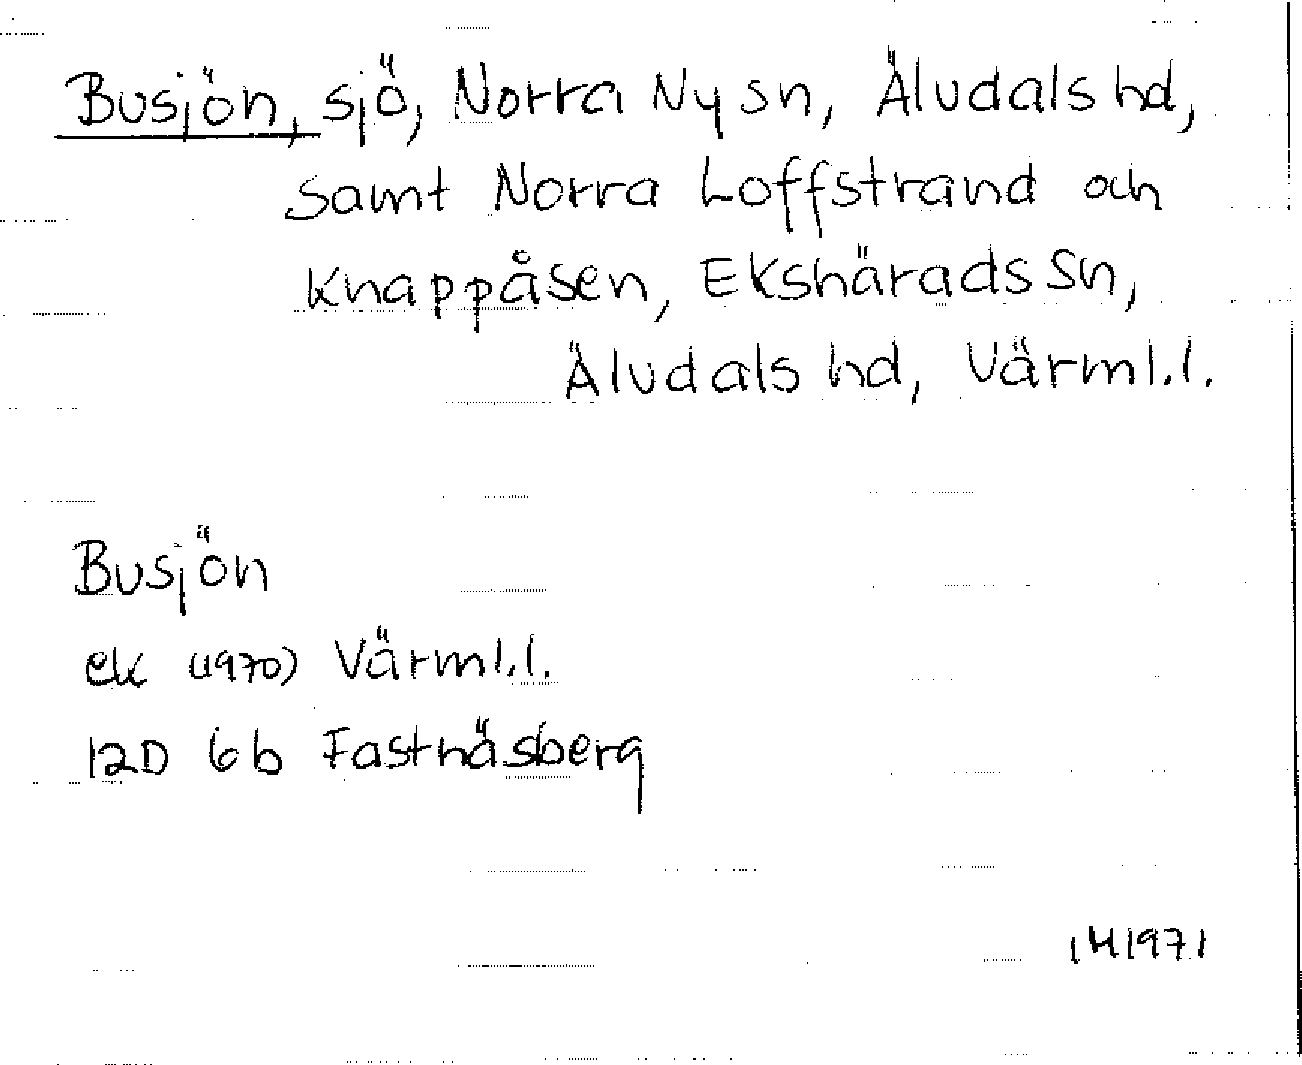 Busjön, sjö, Norra Ny sn, Älvdals hd,
samt Norra Loffstrand och
Knappåsen, Ekshärads sn,
Älvdals hd, Värml.l.
Busjön
ek (1970) Värml.l.
12D 6b Fastnäsberg
IH 1971